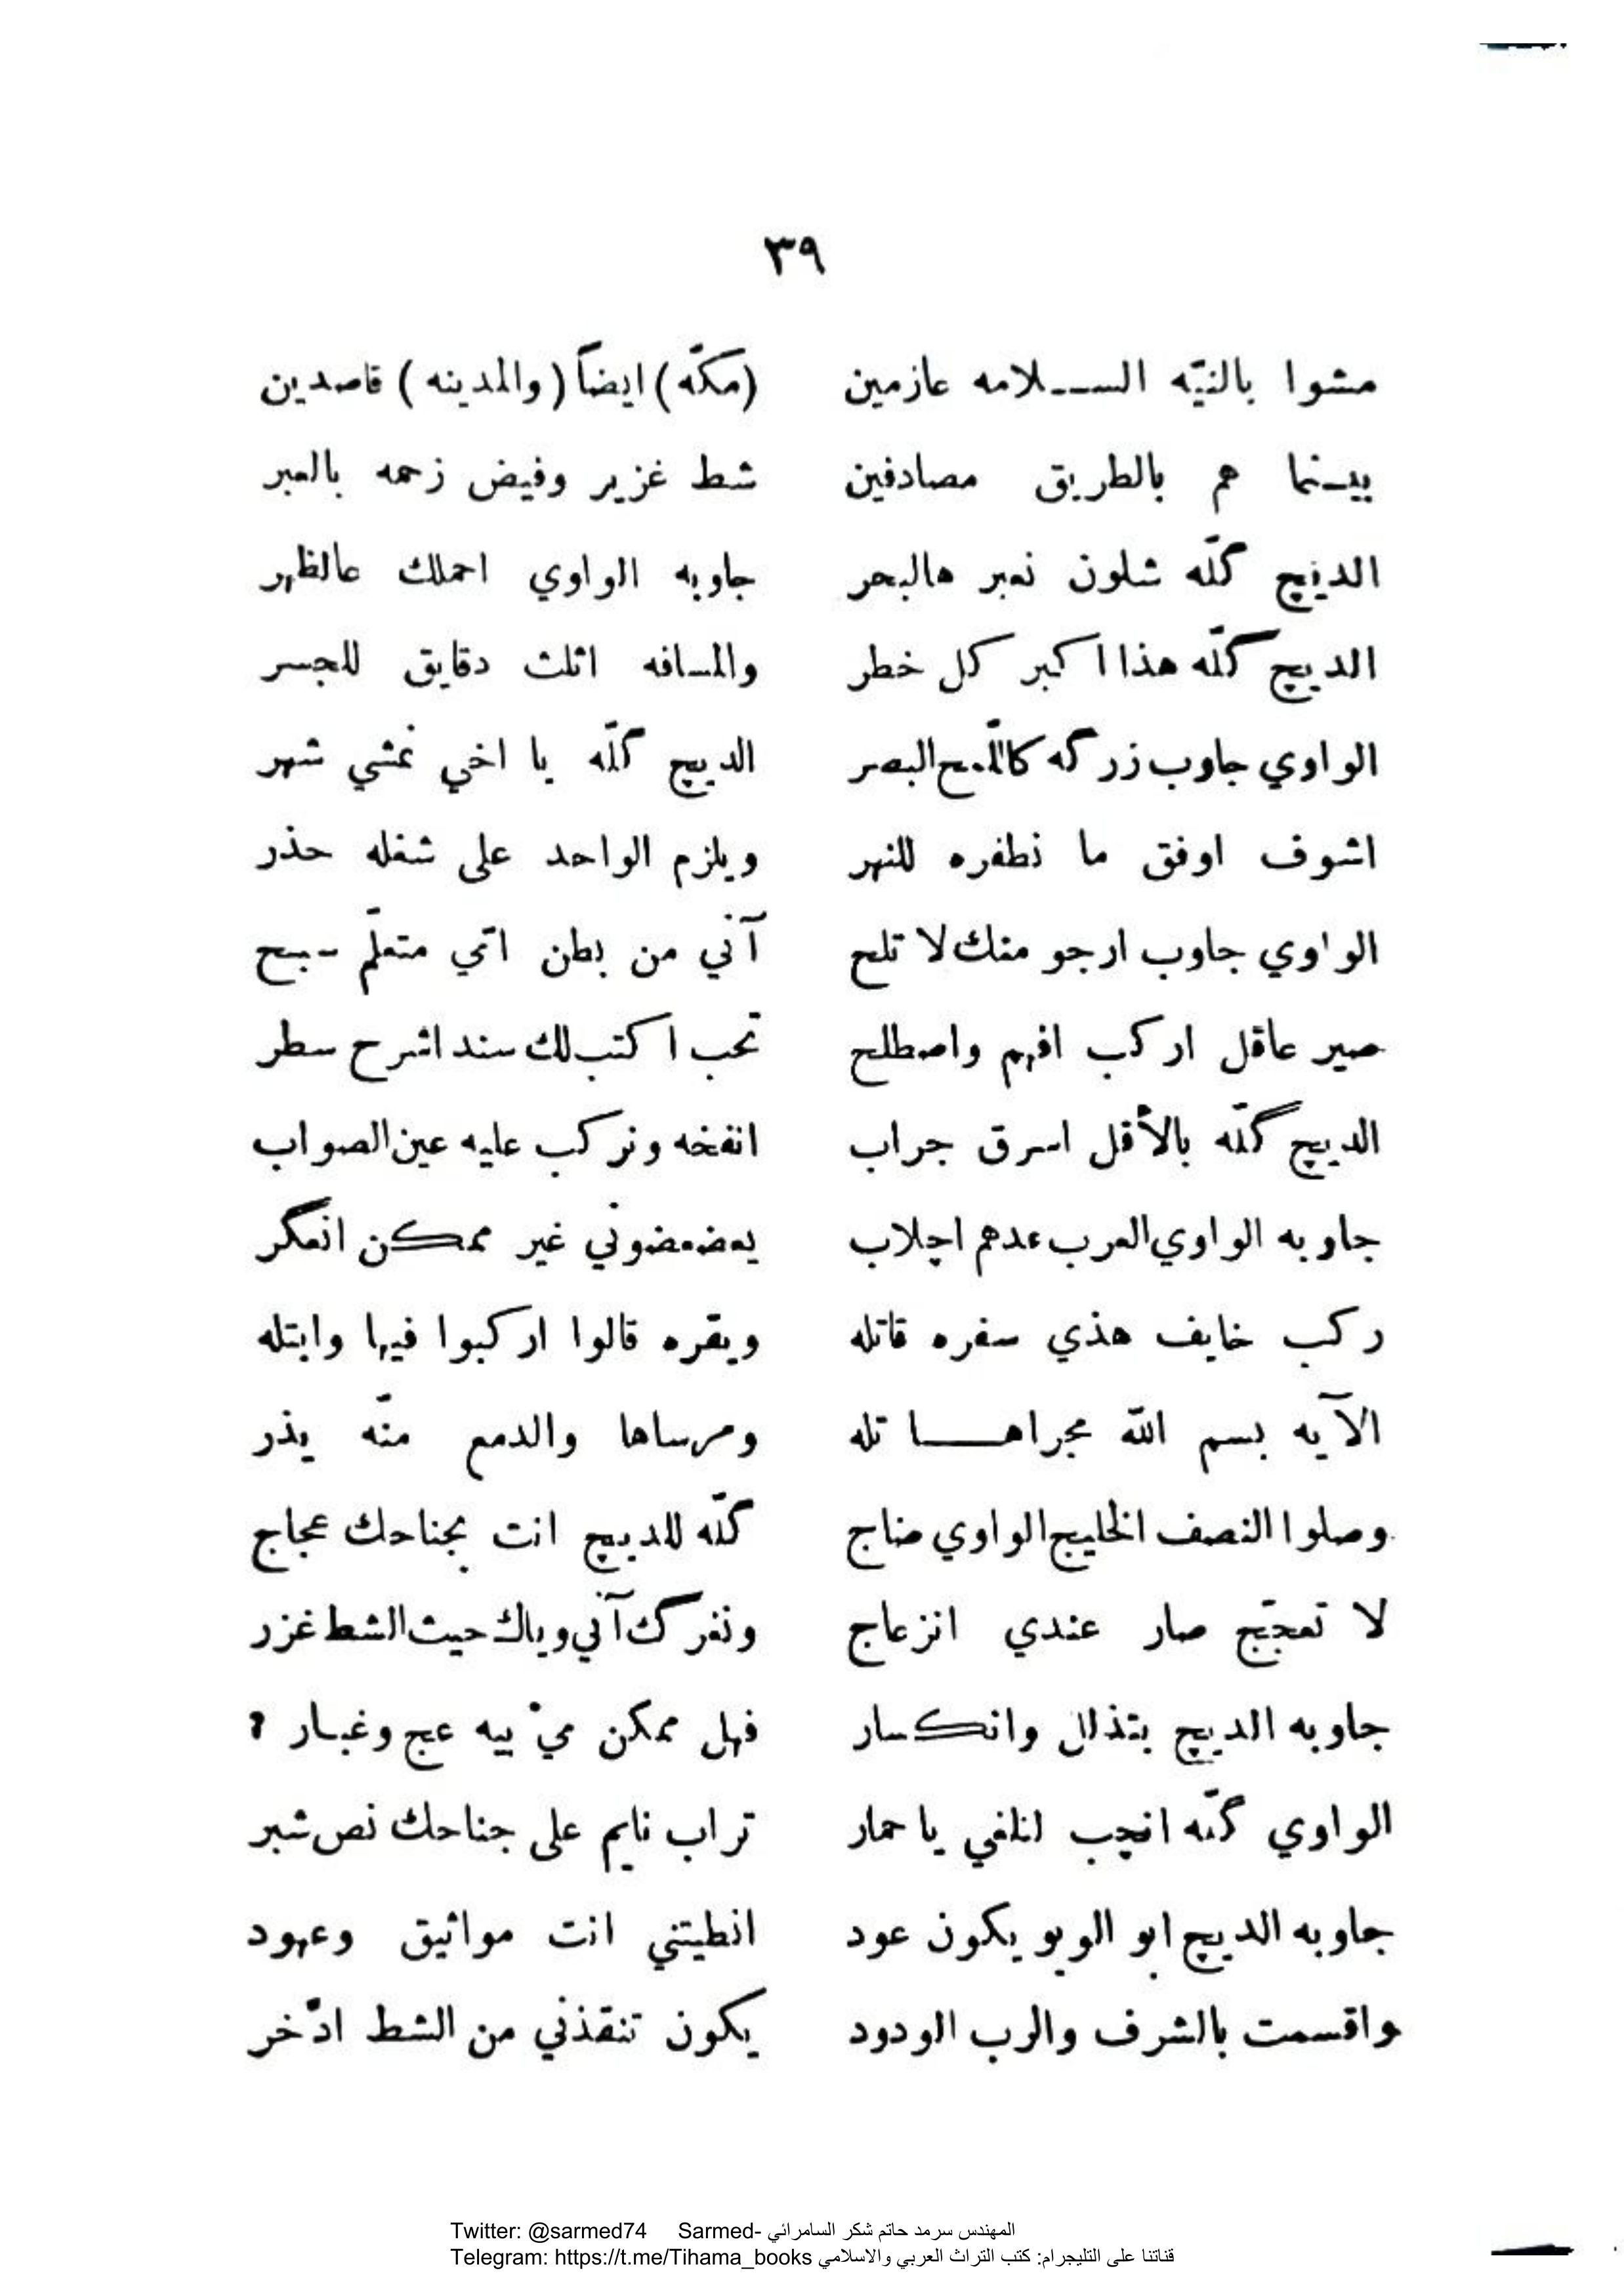 ٣٩
مشوا بالنيّه الســلامه عازمين (مكّه) ايضاً (والمدينه) قاصدين
بينما هم بالطريق مصادفين شط غزير وفيض زحمه بالعبر
الديچ گلّه شلون نعبر هالبحر جاوبه الواوي احملك عالظهر
الديچ گلّه هذا اكبر كل خطر والمسافه اثلث دقايق للجسر
الواوي جاوب زرگه كاللّمح البصر الديچ گلّه يا اخي نمشي شهر
اشوف اوفق ما نطفره للنهر ويلزم الواحد على شغله حذر
الواوي جاوب ارجو منك لا تلح آني من بطن امّي متعلّم سبح
صير عاقل اركب افهم واصطلح تحب اكتب لك سند اشرح سطر
الديچ گلّه بالأقل اسرق جراب انفخه ونركب عليه عين الصواب
جاوبه الواوي العرب عدهم اچلاب يعضعضوني غير ممكن انعگر
ركب خايف هذي سفره قاتله ويقره قالوا اركبوا فيها وابتله
الآيه بسم الله مجراهــا تله ومرساها والدمع منّه يذر
وصلوا النصف الخليج الواوي ضاج گلّه للديچ انت بجناحك عجاج
لا تعجّج صار عندي انزعاج ونغرگ آني وياك حيث الشط غزر
جاوبه الديچ بتذلل وانكسار فهل ممكن ميْ بيه عج وغبار ؟
الواوي گلّه انچب انلغي يا حمار تراب نايم على جناحك نص شبر
جاوبه الديچ ابو الويو يكون عود انطيتني انت مواثيق وعهود
واقسمت بالشرف والرب الودود يكون تنقذني من الشط ادّخر
Twitter: @sarmed74 Sarmed- المهندس سرمد حاتم شكر السامرائي
Telegram: https://t.me/Tihama_books قناتنا على التليجرام: كتب التراث العربي والاسلامي